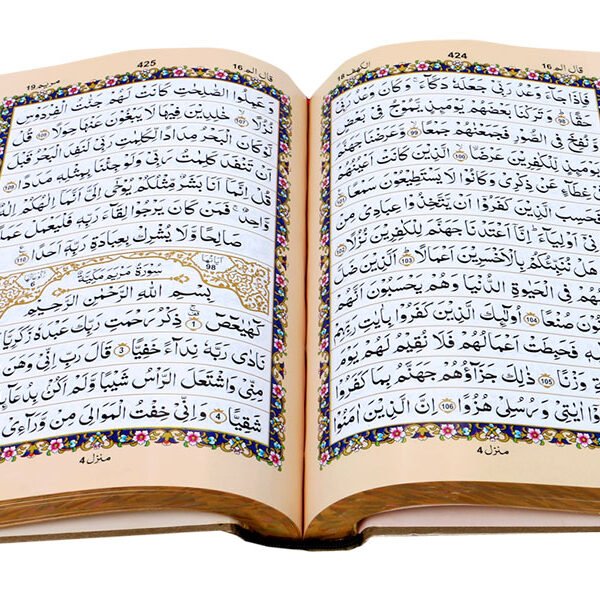 قال الم 16 424 الكهف 18
فَاِذَا جَآءَ وَعْدُ رَبِّیْ جَعَلَهٗ دَكَّآءَ ۚ وَكَانَ وَعْدُ رَبِّیْ
حَقًّا 98 وَتَرَكْنَا بَعْضَهُمْ یَوْمَىِٕذٍ یَّمُوْجُ فِیْ بَعْضٍ
وَّنُفِخَ فِی الصُّوْرِ فَجَمَعْنٰهُمْ جَمْعًا 99 وَّعَرَضْنَا جَهَنَّمَ
یَوْمَىِٕذٍ لِّلْكٰفِرِیْنَ عَرْضَا 100 الَّذِیْنَ كَانَتْ اَعْیُنُهُمْ
غِطَآءٍ عَنْ ذِكْرِیْ وَكَانُوْا لَا یَسْتَطِیْعُوْنَ سَمْعًا 101
اَفَحَسِبَ الَّذِیْنَ كَفَرُوْۤا اَنْ یَّتَّخِذُوْا عِبَادِیْ مِنْ
اَوْلِیَآءَ ؕ اِنَّاۤ اَعْتَدْنَا جَهَنَّمَ لِلْكٰفِرِیْنَ نُزُلًا
هَلْ نُنَبِّئُكُمْ بِالْاَخْسَرِیْنَ اَعْمَالًا 103 اَلَّذِیْنَ ضَلَّ
فِی الْحَیٰوةِ الدُّنْیَا وَهُمْ یَحْسَبُوْنَ اَنَّهُمْ
صُنْعًا 104 اُولٰٓىِٕكَ الَّذِیْنَ كَفَرُوْا بِاٰیٰتِ رَبِّهِمْ
فَحَبِطَتْ اَعْمَالُهُمْ فَلَا نُقِیْمُ لَهُمْ یَوْمَ
وَزْنًا 105 ذٰلِكَ جَزَآؤُهُمْ جَهَنَّمُ بِمَا كَفَرُوْا
اٰیٰتِیْ وَرُسُلِیْ هُزُوًا 106 اِنَّ الَّذِیْنَ اٰمَنُوْا
منزل 4
قال الم 16 425 مریم 19
وَعَمِلُوا الصّٰلِحٰتِ كَانَتْ لَهُمْ جَنّٰتُ الْفِرْدَوْسِ
نُزُلًا 107 خٰلِدِیْنَ فِیْهَا لَا یَبْغُوْنَ عَنْهَا حِوَلًا 108 قُلْ
لَّوْ كَانَ الْبَحْرُ مِدَادًا لِّكَلِمٰتِ رَبِّیْ لَنَفِدَ الْبَحْرُ قَبْلَ
اَنْ تَنْفَدَ كَلِمٰتُ رَبِّیْ وَلَوْ جِئْنَا بِمِثْلِهٖ مَدَدًا 109
قُلْ اِنَّمَاۤ اَنَا بَشَرٌ مِّثْلُكُمْ یُوْحٰۤى اِلَیَّ اَنَّمَاۤ اِلٰهُكُمْ اِلٰهٌ
وَّاحِدٌ ۚ فَمَنْ كَانَ یَرْجُوْا لِقَآءَ رَبِّهٖ فَلْیَعْمَلْ عَمَلًا
صَالِحًا وَّلَا یُشْرِكْ بِعِبَادَةِ رَبِّهٖۤ اَحَدًا 110
اٰیاتها 98 سُوْرَةُ مَرْیَمَ مَكِّیَّةٌ 6
بِسْمِ اللّٰهِ الرَّحْمٰنِ الرَّحِیْمِ
كٓهٰیٰعٓصٓ 1 ذِكْرُ رَحْمَتِ رَبِّكَ عَبْدَهٗ زَكَرِیَّا
نَادٰى رَبَّهٗ نِدَآءً خَفِیًّا 3 قَالَ رَبِّ اِنِّیْ وَهَنَ
مِنِّیْ وَاشْتَعَلَ الرَّاْسُ شَیْبًا وَّلَمْ اَكُنْۢ بِدُعَآىِٕكَ
شَقِیًّا 4 وَاِنِّیْ خِفْتُ الْمَوَالِیَ مِنْ وَّرَآءِیْ
منزل 4